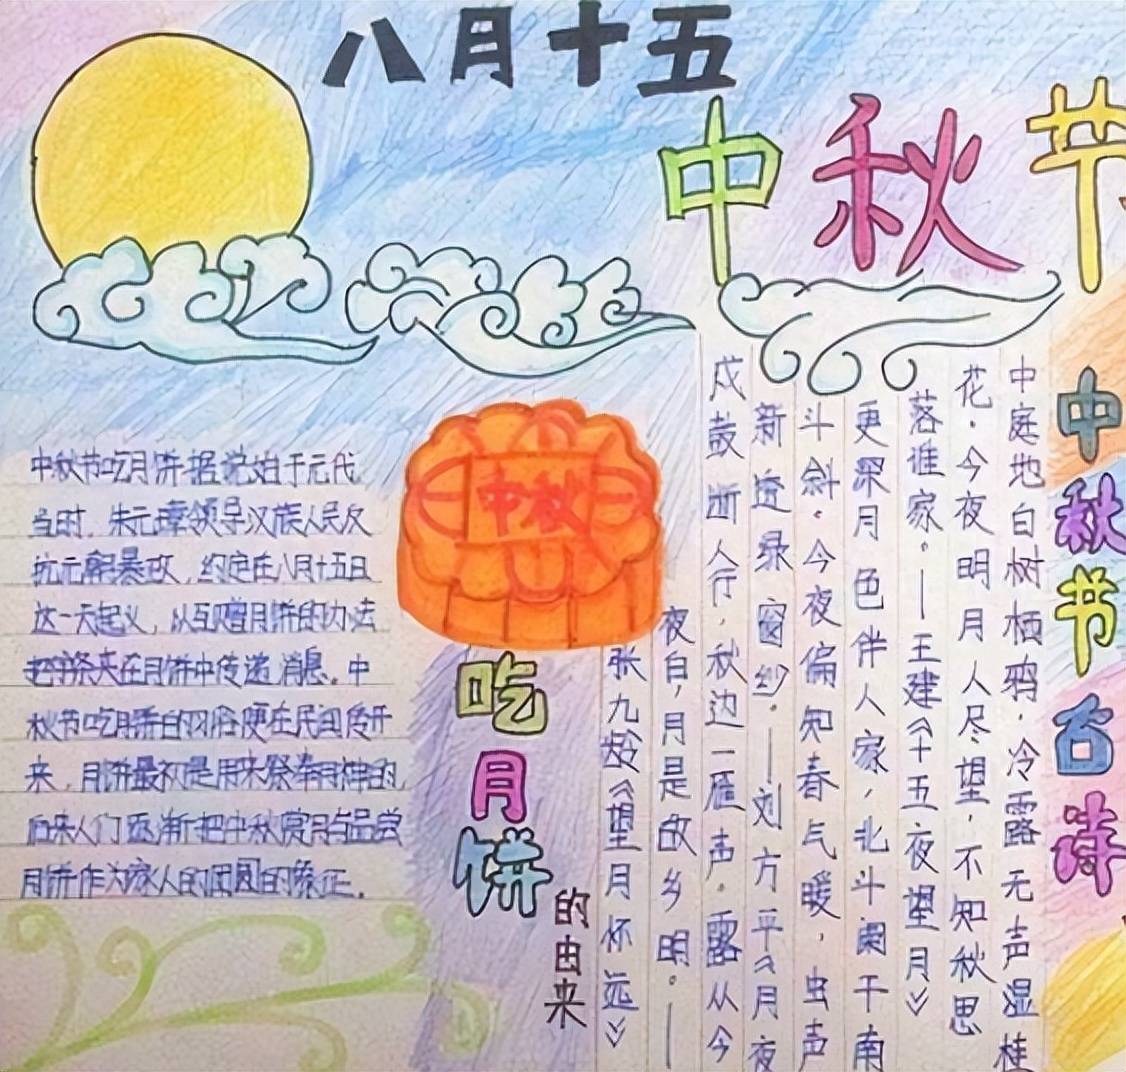 八月十五
中秋节
中秋节吃月饼据说始于元代
当时，朱元璋领导汉族人民反
抗元朝暴政，约定在八月十五日
这一天起义，以互赠月饼的办法
把字条夹在月饼中传递消息。中
秋节吃月饼的习俗便在民间传开
来，月饼最初是用来祭奉月神的
后来人们逐渐把中秋赏月与品尝
月饼作为家人的团圆的象征。
中秋
吃月饼
的由来
中秋节古诗
中庭地白树栖鸦，冷露无声湿桂
花。今夜明月人尽望，不知秋思
落谁家。——王建《十五夜望月》
更深月色伴人家，北斗阑干南
斗斜。今夜偏知春气暖，虫声
新透绿窗纱。——刘方平《月夜
戍鼓断人行，秋边一雁声。露从今
夜白，月是故乡明。——
张九龄《望月怀远》